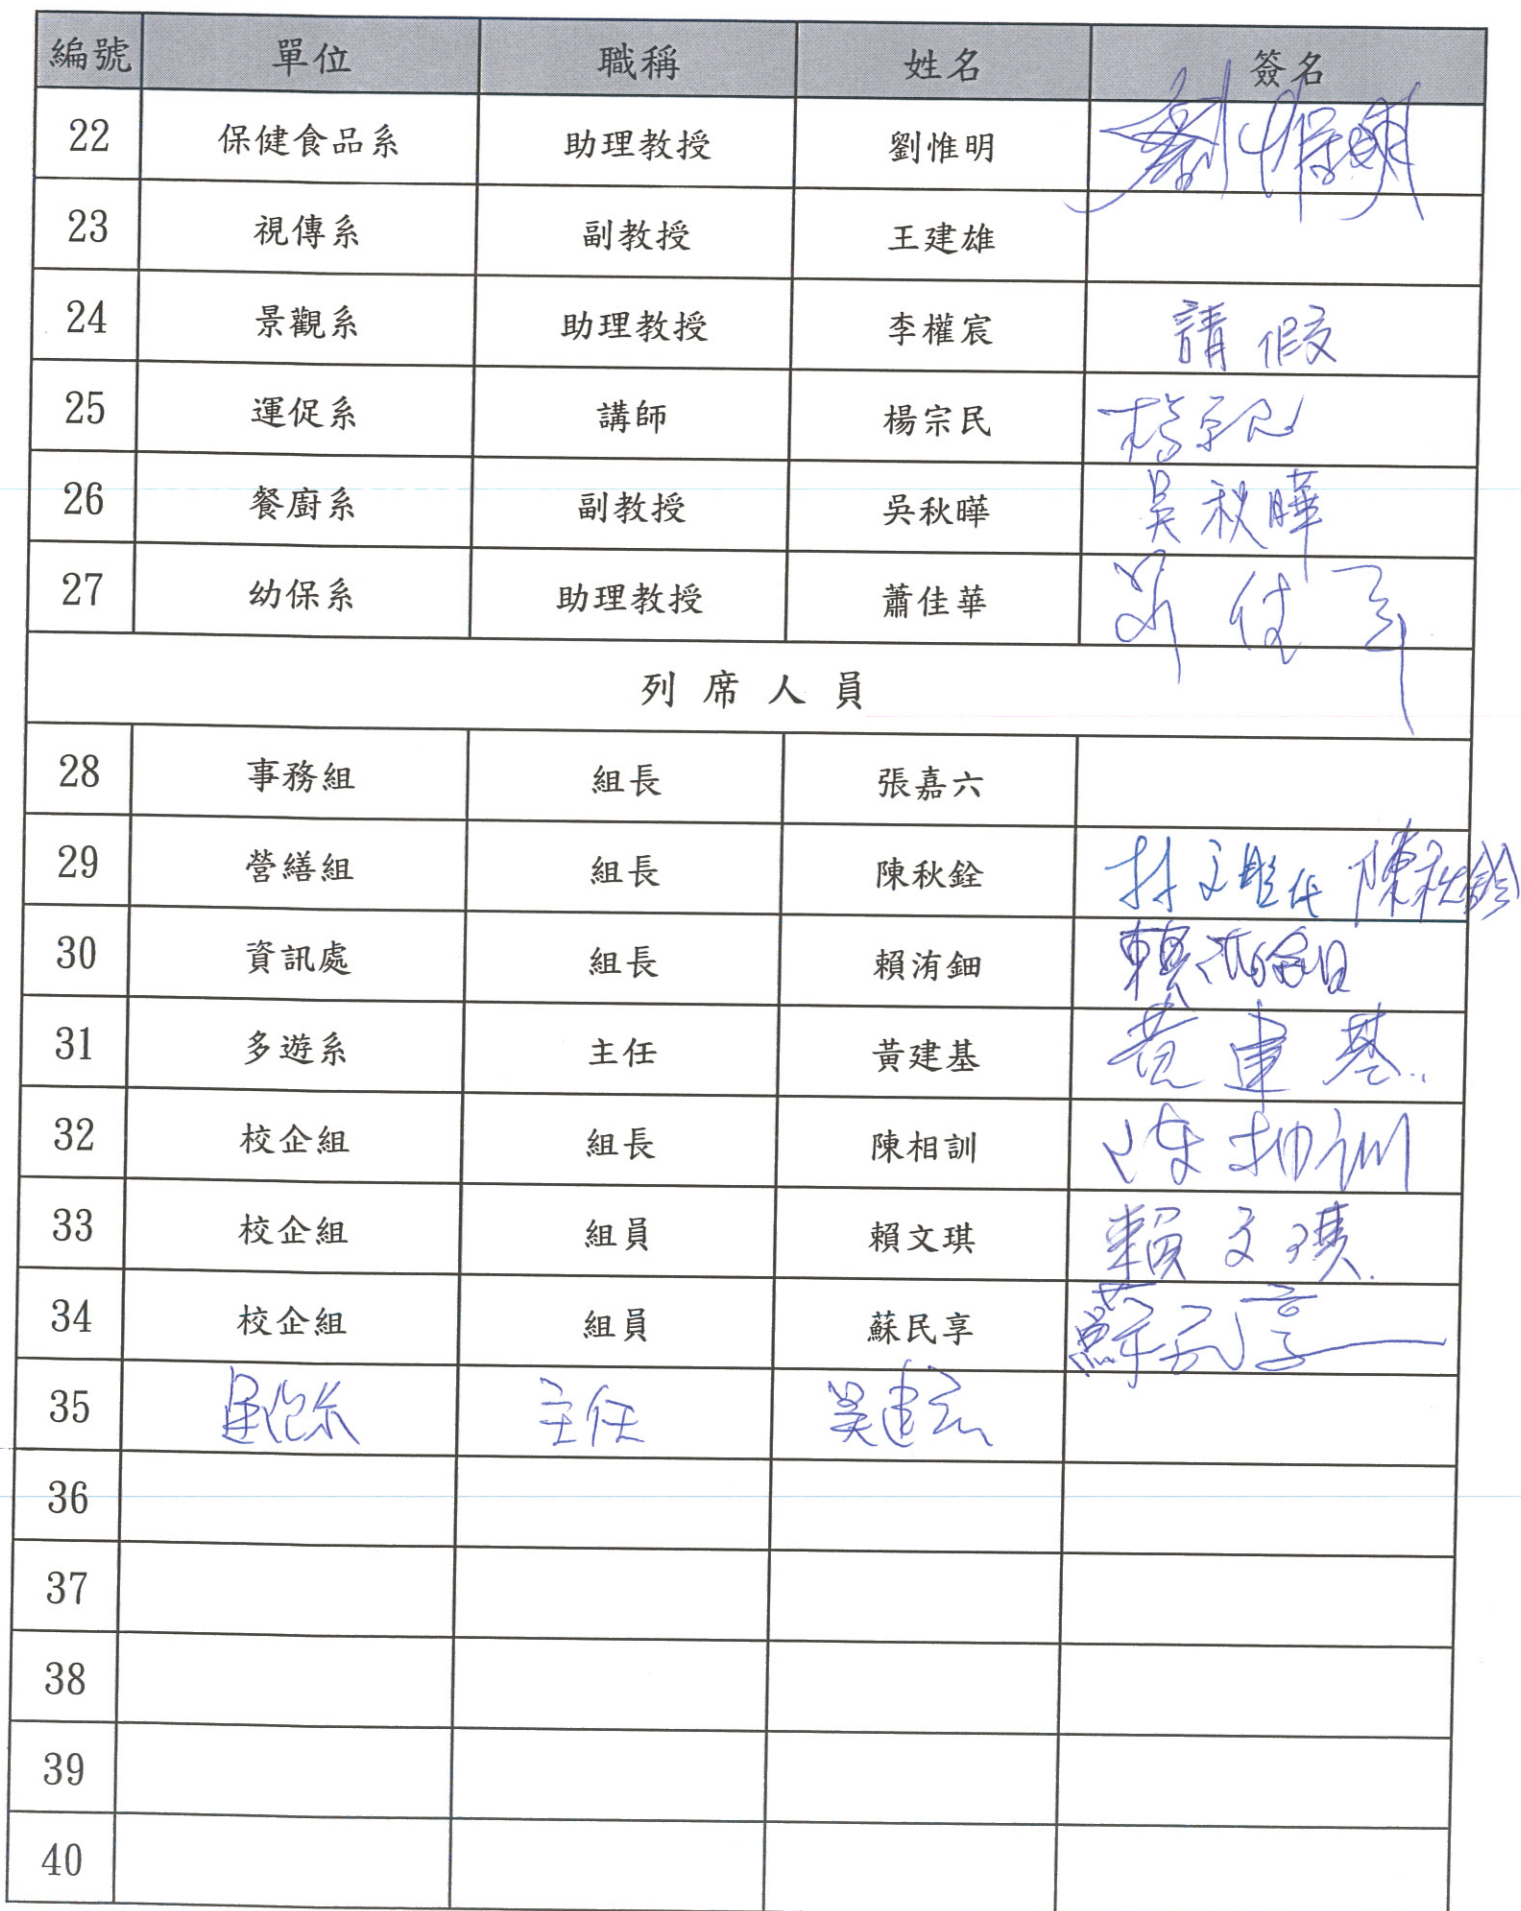 編號 單位 職稱 姓名 簽名
22 保健食品系 助理教授 劉惟明 劉惟明
23 視傳系 副教授 王建雄
24 景觀系 助理教授 李權宸 請假
25 運促系 講師 楊宗民 楊宗民
26 餐廚系 副教授 吳秋曄 吳秋曄
27 幼保系 助理教授 蕭佳華 佳
列席人員
28 事務組 組長 張嘉六
29 營繕組 組長 陳秋銓 代 陳秋銓
30 資訊處 組長 賴洧鈿 賴
31 多遊系 主任 黃建基 黃建基
32 校企組 組長 陳相訓 陳相訓
33 校企組 組員 賴文琪 賴文琪
34 校企組 組員 蘇民享 蘇民享
35 運促系 主任 吳建
36
37
38
39
40